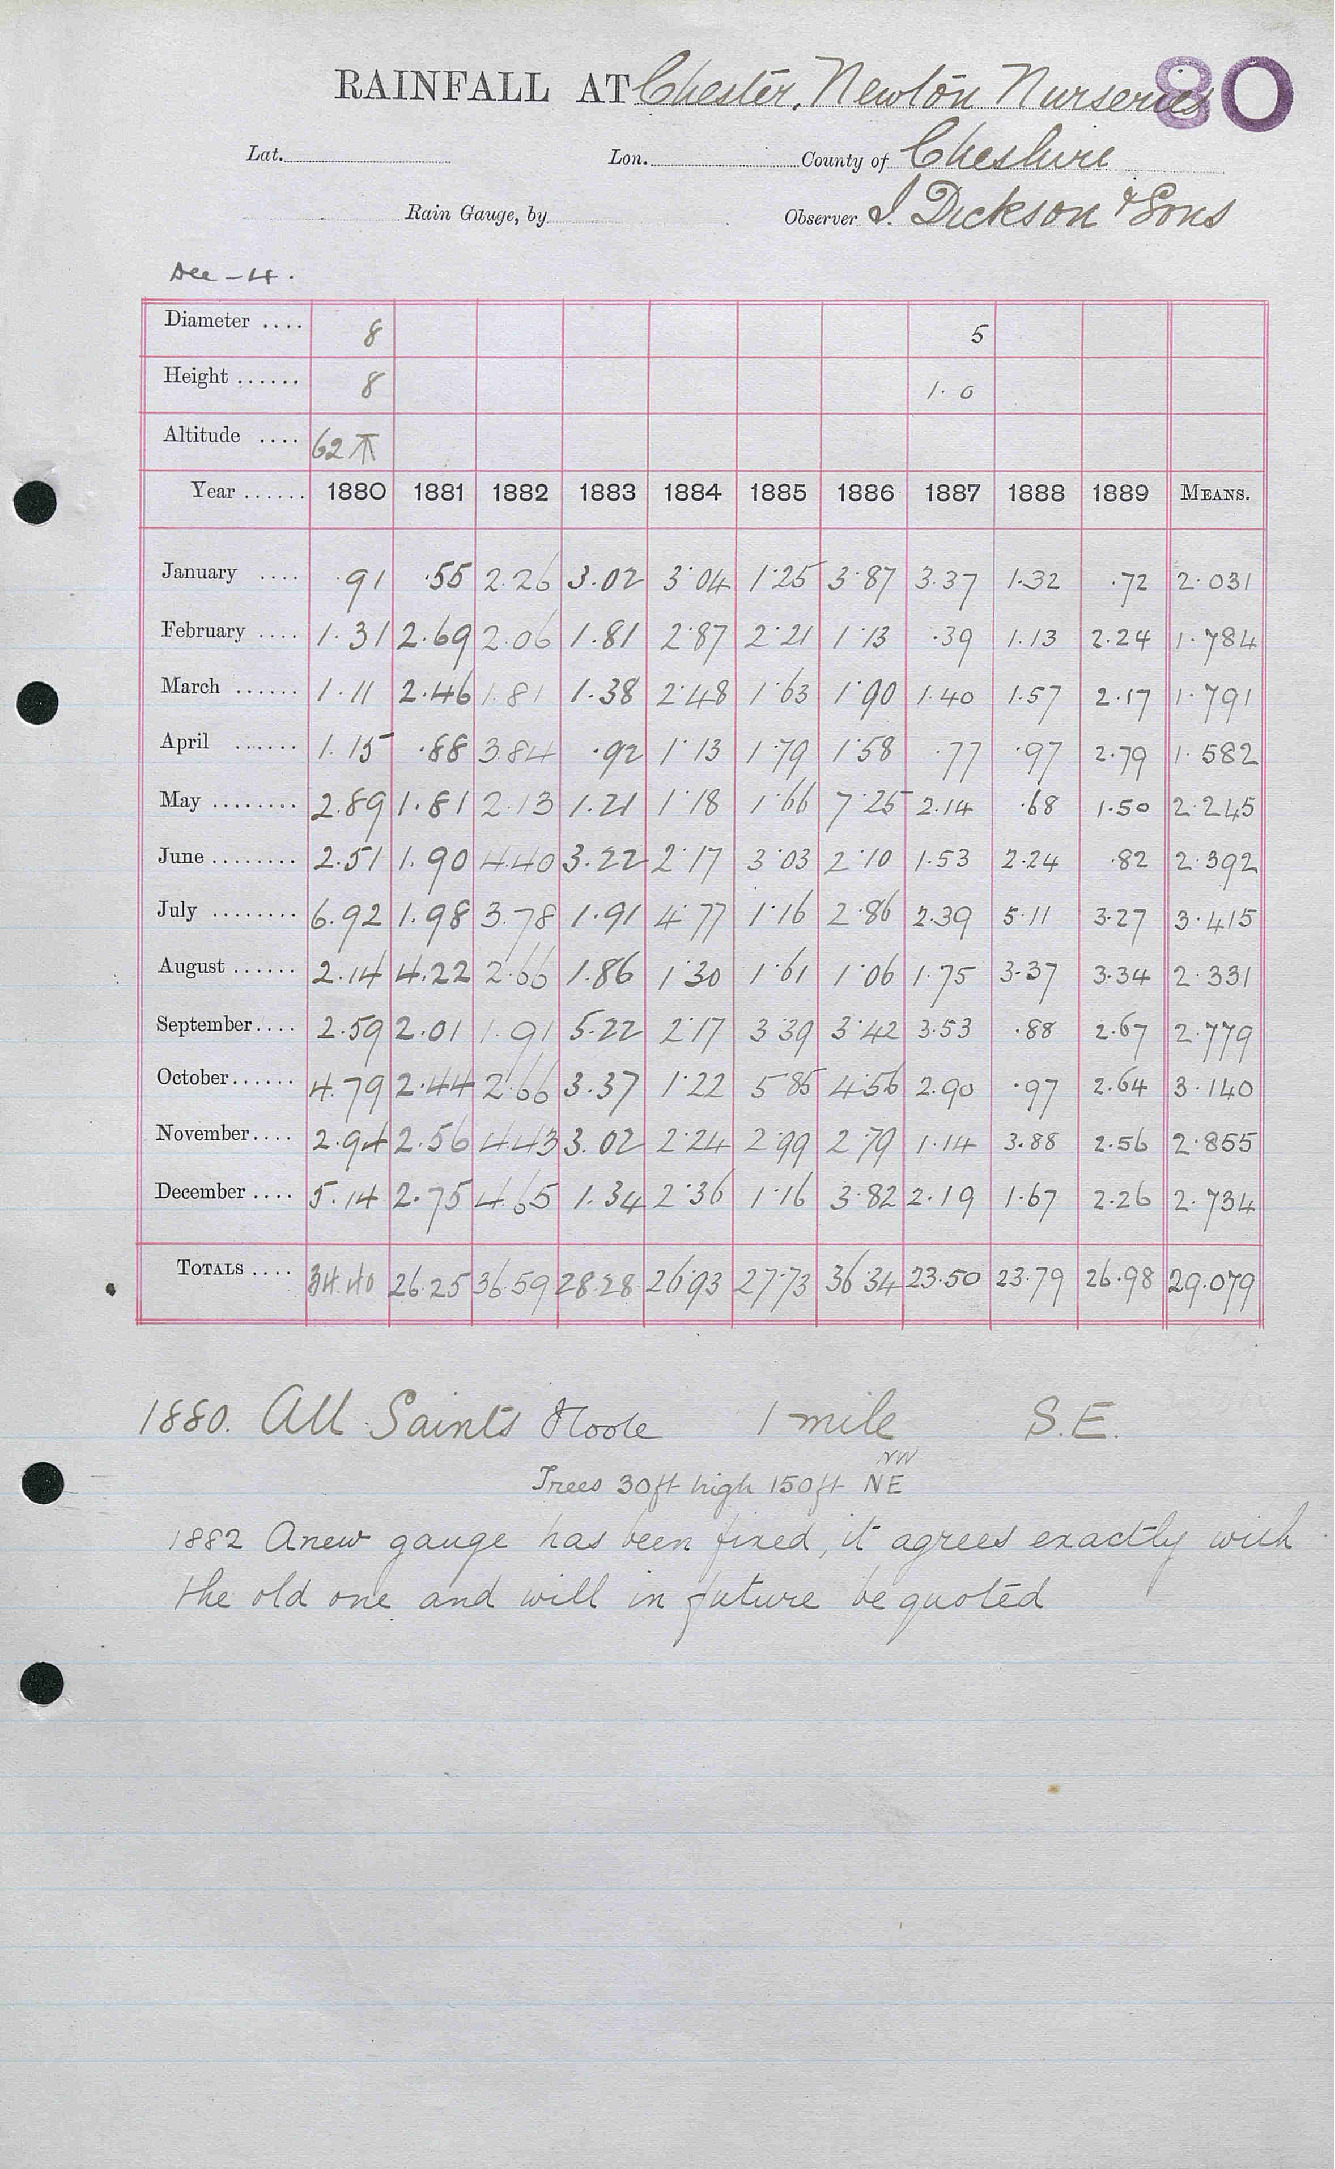 80
RAINFALL AT Chester, Newton Nurseries
Lat. Lon. County of Cheshire
Rain Gauge, by Observer J. Dickson & Sons
Dec - 4.
Diameter .... 8 5
Height ...... 8 1.0
Altitude .... 62
Year ...... 1880 1881 1882 1883 1884 1885 1886 1887 1888 1889 MEANS.
January .... .91 .55 2.26 3.02 3.04 1.25 3.87 3.37 1.32 .72 2.031
February .... 1.31 2.69 2.06 1.81 2.87 2.21 1.13 .39 1.13 2.24 1.784
March ...... 1.11 2.46 1.81 1.38 2.48 1.63 1.90 1.40 1.57 2.17 1.791
April ...... 1.15 .88 3.84 .92 1.13 1.79 1.58 .77 .97 2.79 1.582
May ........ 2.89 1.81 2.13 1.21 1.18 1.66 7.25 2.14 .68 1.50 2.245
June ........ 2.51 1.90 4.40 3.22 2.17 3.03 2.10 1.53 2.24 .82 2.392
July ........ 6.92 1.98 3.78 1.91 4.77 1.16 2.86 2.39 5.11 3.27 3.415
August ...... 2.14 4.22 2.66 1.86 1.30 1.61 1.06 1.75 3.37 3.34 2.331
September.... 2.59 2.01 1.91 5.22 2.17 3.39 3.42 3.53 .88 2.67 2.779
October...... 4.79 2.44 2.66 3.37 1.22 5.85 4.56 2.90 .97 2.64 3.140
November.... 2.94 2.56 4.43 3.02 2.24 2.99 2.79 1.14 3.88 2.56 2.855
December .... 5.14 2.75 4.65 1.34 2.36 1.16 3.82 2.19 1.67 2.26 2.734
TOTALS .... 34.40 26.25 36.59 28.28 26.93 27.73 36.34 23.50 23.79 26.98 29.079
1880. All Saints Hoole 1 mile S.E.
NW
Trees 30ft high 150ft NE
1882 A new gauge has been fixed, it agrees exactly with
the old one and will in future be quoted